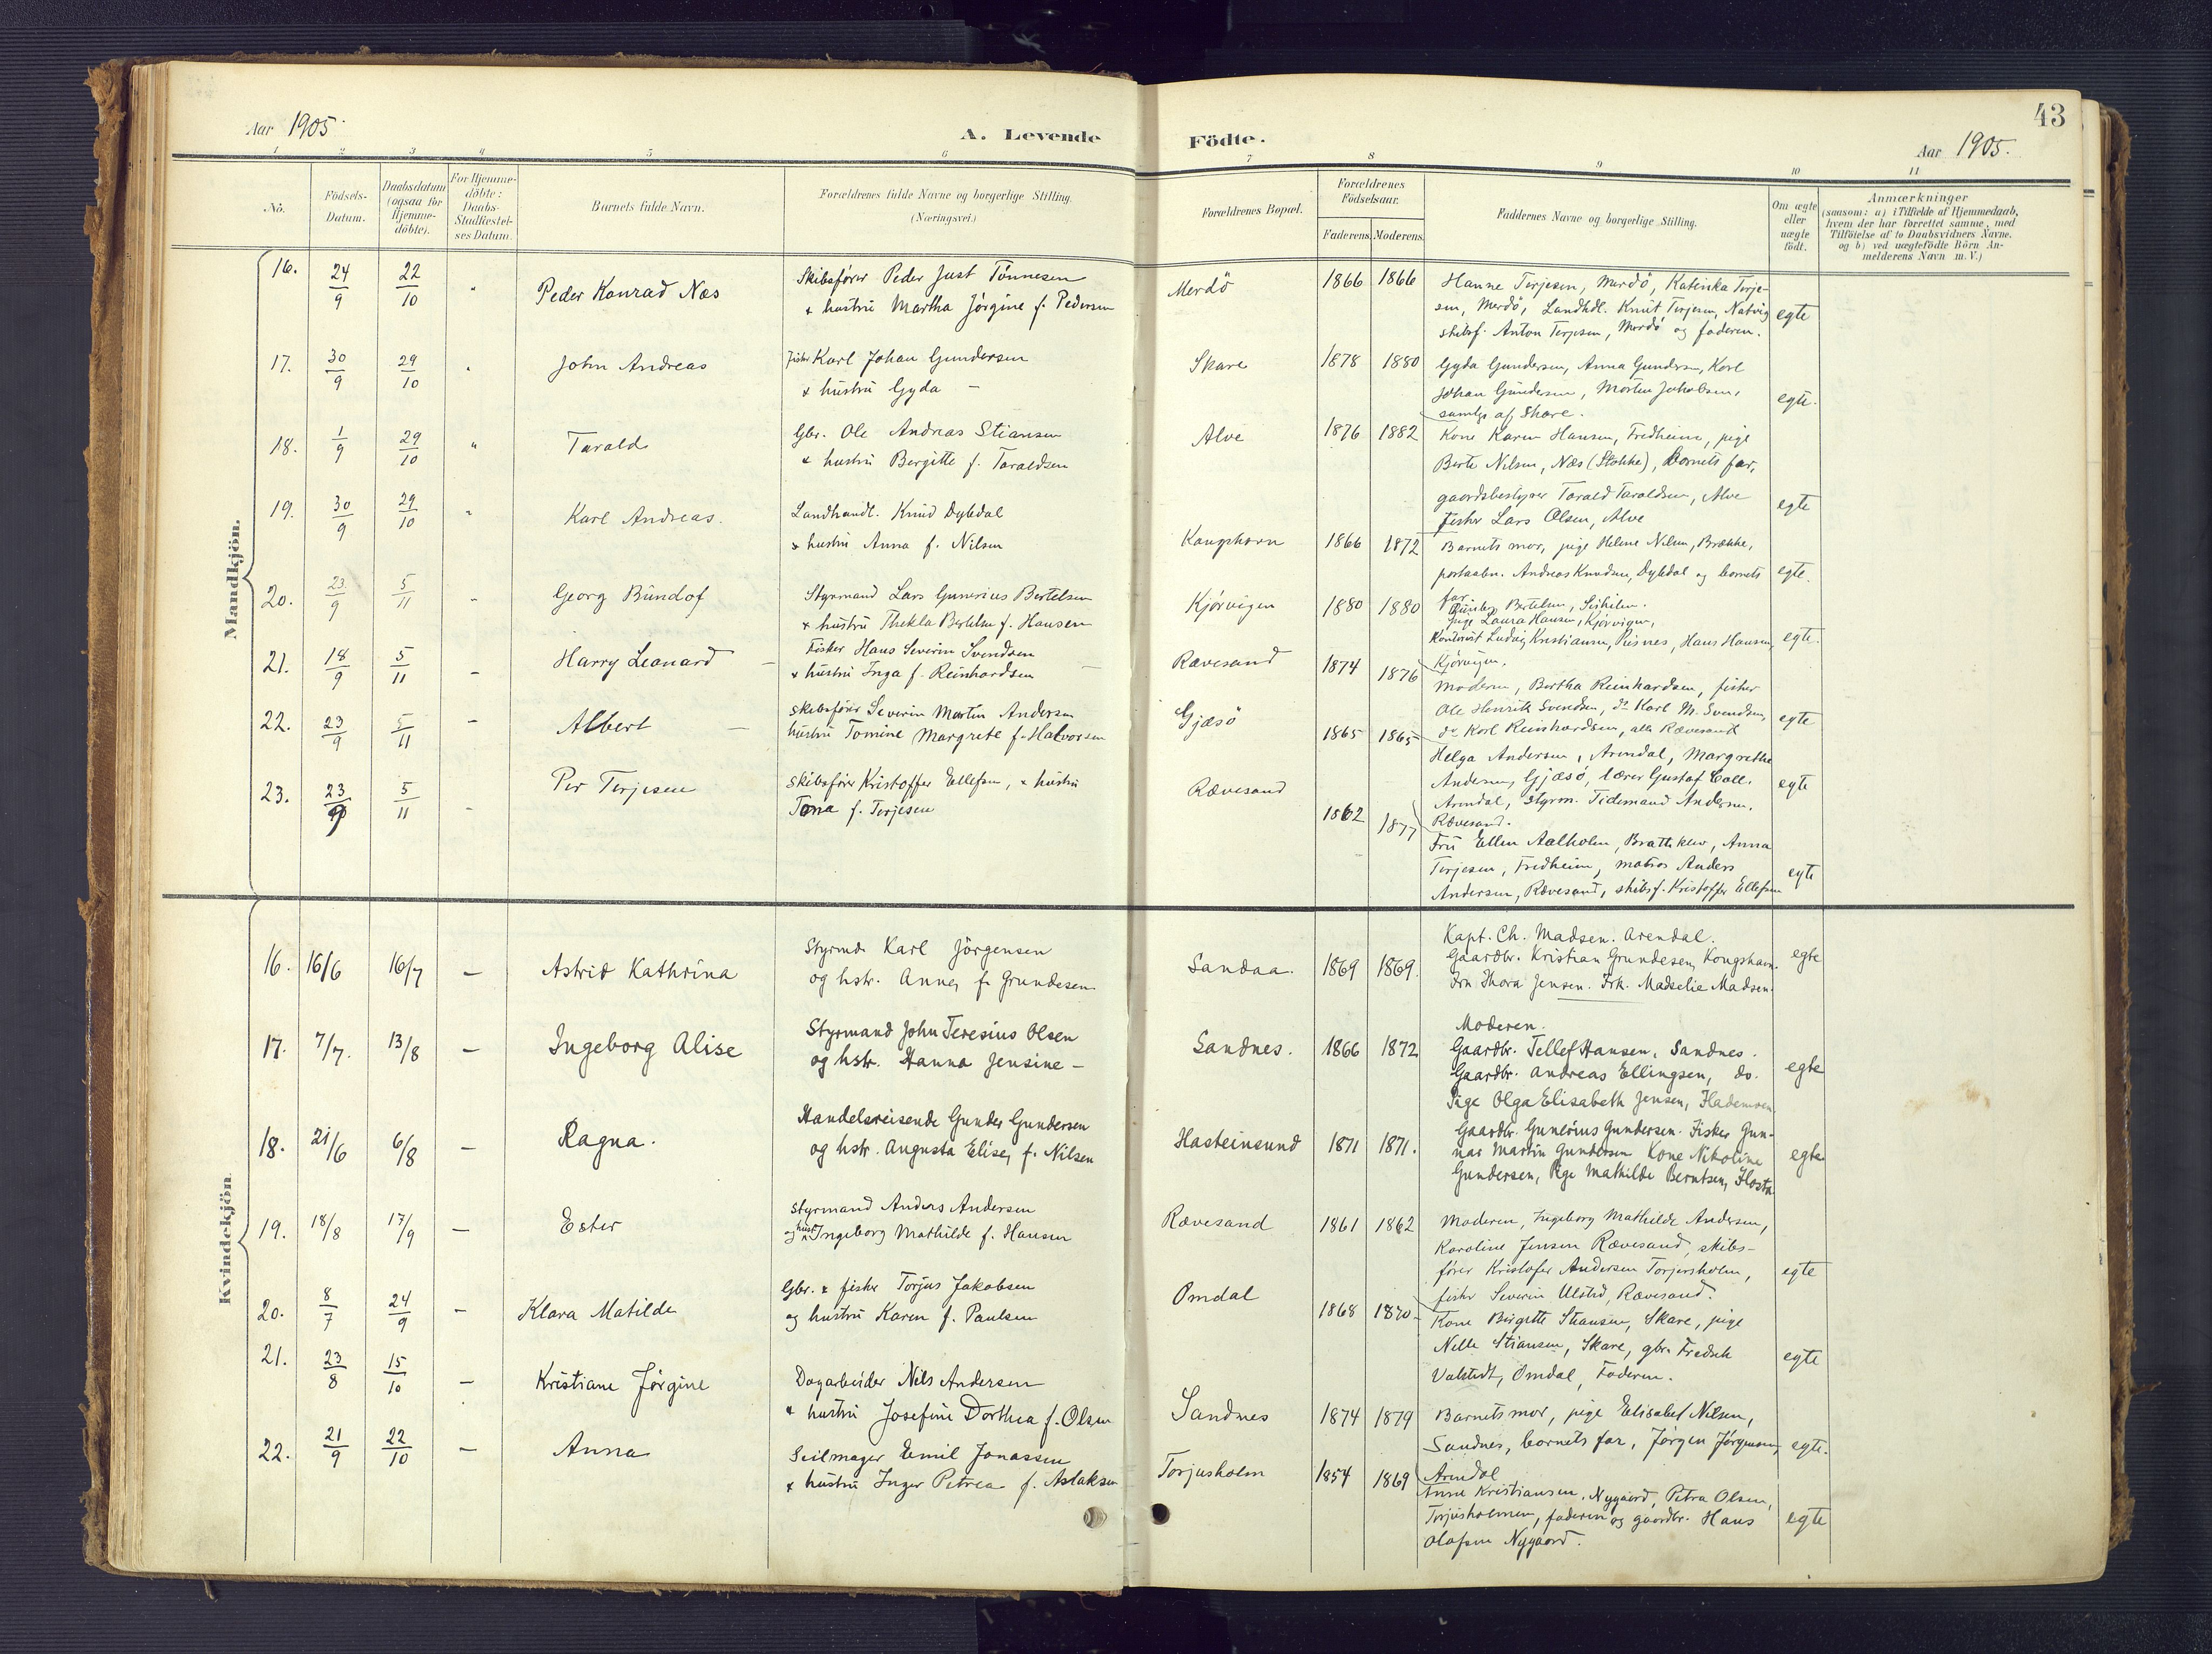 43
Aar 1905. A. Levende Födte. Aar 1905.
1 2 3 4 5 6 7 8 9 10 11
No.
Födsels-
Datum.
Daabsdatum
(ogsaa for
Hjemme-
döbte).
For Hjemme-
döbte:
Daabs-
Stadfæstel-
ses Datum.
Barnets fulde Navn.
Forældrenes fulde Navne og borgerlige Stilling.
(Næringsvei.)
Forældrenes Bopæl.
Forældrenes
Födselsaar.
Faderens. Moderens.
Faddernes Navne og borgerlige Stilling.
Om ægte
eller
uægte
födt.
Anmærkninger
(saasom: a) i Tilfælde af Hjemmedaab,
hvem der har forrettet samme, med
Tilföielse af to Daabsvidners Navne.
og b) ved uægtefödte Börn An-
melderens Navn m. V.)
Mandkjön.
16. 24/9 22/10 " Peder Konrad Næs
Skibsfører Peder Just Tönnesen
& hustru Martha Jörgine f. Pedersen
Merdö 1866 1866
Hanne Terjesen, Merdö, Katinka Terje-
sen, Merdö, Landhdl. Knut Terjesen, Natvig
skibsf. Anton Terjesen, Merdö og faderen.
egte
17. 30/9 29/10 " John Andreas
Fisker Karl Johan Gundersen
& hustru Gyda –
Skare 1878 1880
Gyda Gundersen, Anna Gundersen, Karl
Johan Gundersen, Morten Jakobsen,
samtl. af Skare.
egte.
18. 1/9 29/10 " Tarald
Gbr. Ole Andreas Stiansen
& hustru Bergitte f. Taraldsen
Alve 1876 1882
Kone Karen Hansen, Fredheim, pige
Berte Nilsen, Næs (Stokke), Barnets far,
gaardsbestyrer Tarald Taraldsen, Alve
fisker Lars Olsen, Alve
egte
19. 30/9 29/10 " Karl Andreas.
Landhandl. Knud Dybdal
& hustru Anna f. Nilsen
Kongshavn 1866 1872
Barnets mor, pige Helene Nilsen, Brække,
postaabn. Andreas Knudsen, Dybdal og barnets
far
egte.
20. 23/9 5/11 " Georg Bündof
Styrmand Lars Gunerius Bertelsen
& hustru Thekla Bertelsen f. Hansen
Kjörvigen 1880 1880
Bertelsen,
Pige Laura Hansen, Kjörvigen,
Ludvig Kristiansen, Pusnes, Hans Hansen
Kjörvigen.
egte.
21. 18/9 5/11 – Harry Leonard –
Fisker Hans Severin Svendsen
& hustru Inga f. Reinhardsen
Rævesand 1874 1876
Moderen, Bertha Reinhardsen, fisker
Ole Henrik Svendsen, do Karl M. Svendsen,
do Karl Reinhardsen, alle Rævesand
egte
22. 23/9 5/11 – Albert –
Skibsfører Severin Martin Andersen
hustru Tomine Margrete f. Halvorsen
Gjæsö 1865 1865
Helga Andersen, Arendal, Margrethe
Andersen, Gjæsö, lærer Gustaf Coll.
Arendal, Styrm. Tidemand Andersen,
Rævesand.
egte
23. 23/9 5/11 – Per Terjesen
Skibsfører Kristoffer Ellefsen, & hustru
Tona f. Terjesen
Rævesand 1862 1877
Fru Ellen Aalholm, Bratteklev, Anna
Terjesen, Fredheim, matros Anders
Andersen, Rævesand, skibsf. Kristoffer Ellefsen
egte
Kvindekjön.
16. 16/6 16/7 – Astrid Kathrina
Styrmd. Karl Jörgensen
og hstr. Anne, f. Grundesen
Sandaa. 1869 1869.
Kapt. Ch. Madsen. Arendal.
Gaardbr. Kristian Grundesen, Kongshavn.
Frn Thora Jensen. Frk. Madselie Madsen.
egte
17. 7/7. 13/8 – Ingeborg Alise
Styrmand John Teresius Olsen
og hstr. Hanna Jensine –
Sandnes. 1866 1872
Moderen.
Gaardbr. Tellef Hansen, Sandnes.
Gaardbr. Andreas Ellingsen, do.
Pige Olga Elisabeth Jensen,
egte
18. 21/6 6/8 – Ragna.
Handelsreisende Gunder Gundersen
og hstr. Augusta Elise, f. Nilsen
Hasteinsund 1871 1871.
Gaardbr. Gunerius Gundersen. Fisker Gun-
nar Martin Gundersen Kone Nikoline
Gundersen, Pige Mathilde Berntsen, Flosta
egte
19. 18/8 17/9 – Ester
Styrmand Anders Andersen
og hustru Ingeborg Mathilde f. Hansen
Rævesand 1861 1862
Moderen, Ingeborg Mathilde Andersen,
Karoline Jensen Rævesand, skibs-
fører Kristofer Andersen Torjusholm,
fisker Severin Ulsted, Rævesand.
egte
20. 8/7 24/9 – Klara Matilde
Gbr. & fisker Torjus Jakobsen
og hustru Karen f. Paulsen
Omdal 1868 1870
Kone Birgitte Stiansen, Skare, pige
Nelle Stiansen, Skare, gbr. Fredrik
Valstedt, Omdal, Faderen.
egte
21. 23/8 15/10 – Kristiane Jörgine
Dagarbeider Nils Andersen
& hustru Josefine Dorthea f. Olsen
Sandnes 1874 1879
Barnets mor, pige Elisabet Nilsen,
Sandnes, barnets far, Jörgen Jörgensen
Arendal
egte.
22. 21/9 22/10 – Anna
Seilmager Emil Jonassen
& hustru Inger Petrea f. Aslaksen
Torjusholm 1854 1869
Anne Kristiansen, Nygaard, Petra Olsen,
Torjusholmen, faderen og gaardbr. Hans
Olafsen Nygaard.
egte